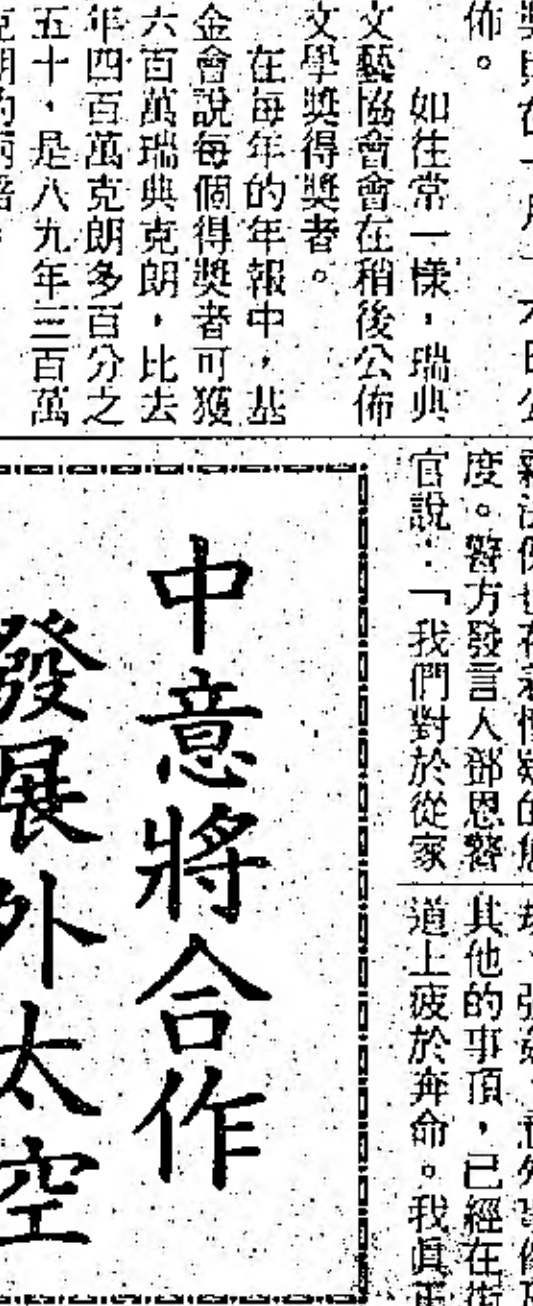 佈。
如往常一樣，瑞典
文藝協會會在稍後公佈
文學獎得獎者。
在每年的年報中，基
金會說每個得獎者可獲
六百萬瑞典克朗，比去
年四百萬克朗多百分之
五十，是八九年三百萬
度。警方發言人鄧恩警
官說：「我們對於從家
其他的事項，已經在街
道上疲於奔命。我眞正
中意將合作
發展外太空